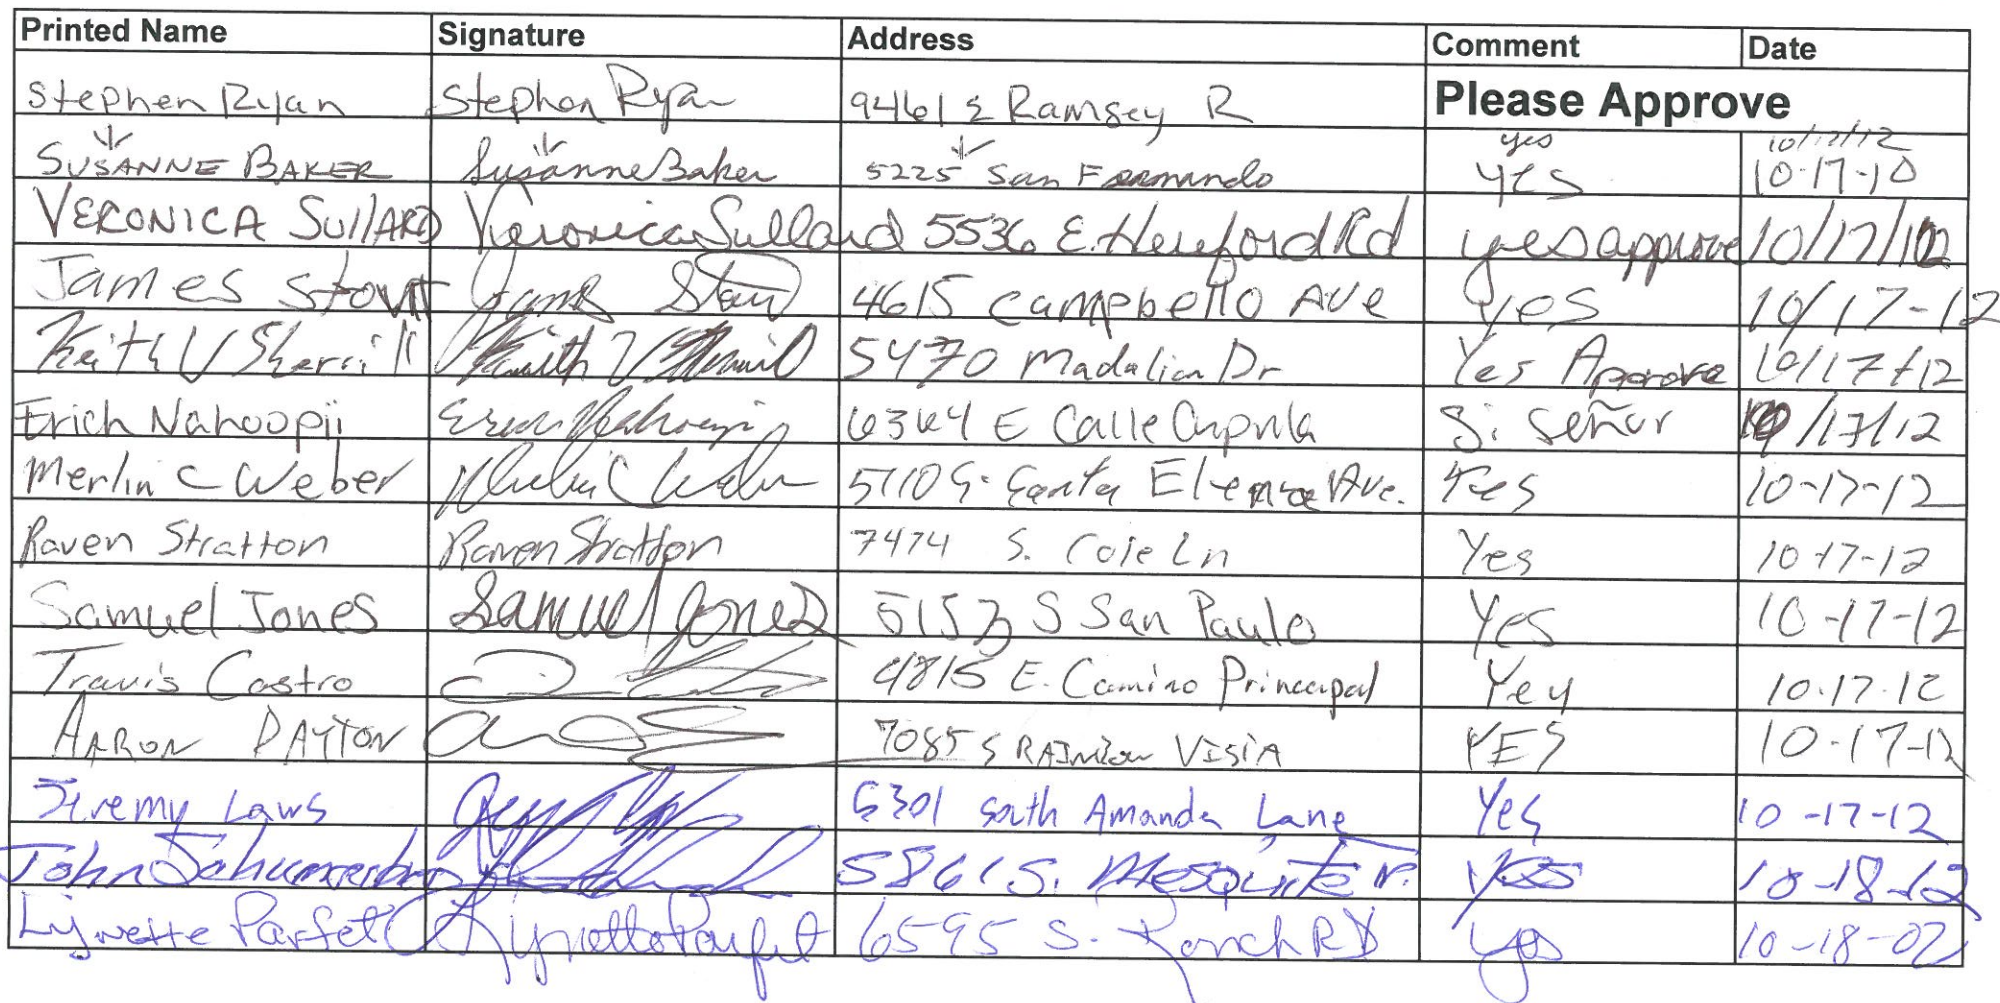 Printed Name Signature Address Comment Date
Stephen Ryan Stephen Ryan 9461 E Ramsey R Please Approve
yes 10/17/12
SUSANNE BAKER Susanne Baker 5225 San Fernando yes 10-17-10
VERONICA SullARD Veronica Sullard 5536 E. Hereford Rd yes approve 10/17/12
James Stout James Stout 4615 Campbello Ave yes 10/17-12
Keith V Sherrill Keith V Sherrill 5470 Madalion Dr Yes Approve 10/17/12
Erich Nahoopii Erich Nahoopii 6364 E Calle Cupula Si Señor 10/17/12
Merlin C Weber Merlin C Weber 5110 S. Santa Elena Ave. Yes 10-17-12
Raven Stratton Raven Stratton 7474 S. Cole Ln Yes 10-17-12
Samuel Jones Samuel Jones 5153 S San Paulo Yes 10-17-12
Travis Castro 4815 E. Camino Princcipal Yey 10.17.12
AARON DAYTON 7085 S RAINbow VISTA YES 10-17-12
Jeremy Laws 6301 South Amanda Lane Yes 10-17-12
John 5861 S. Mesquite Yes 10-18-12
Lynette Parfet Lynette Parfet 6595 S. Ranch RD yes 10-18-02